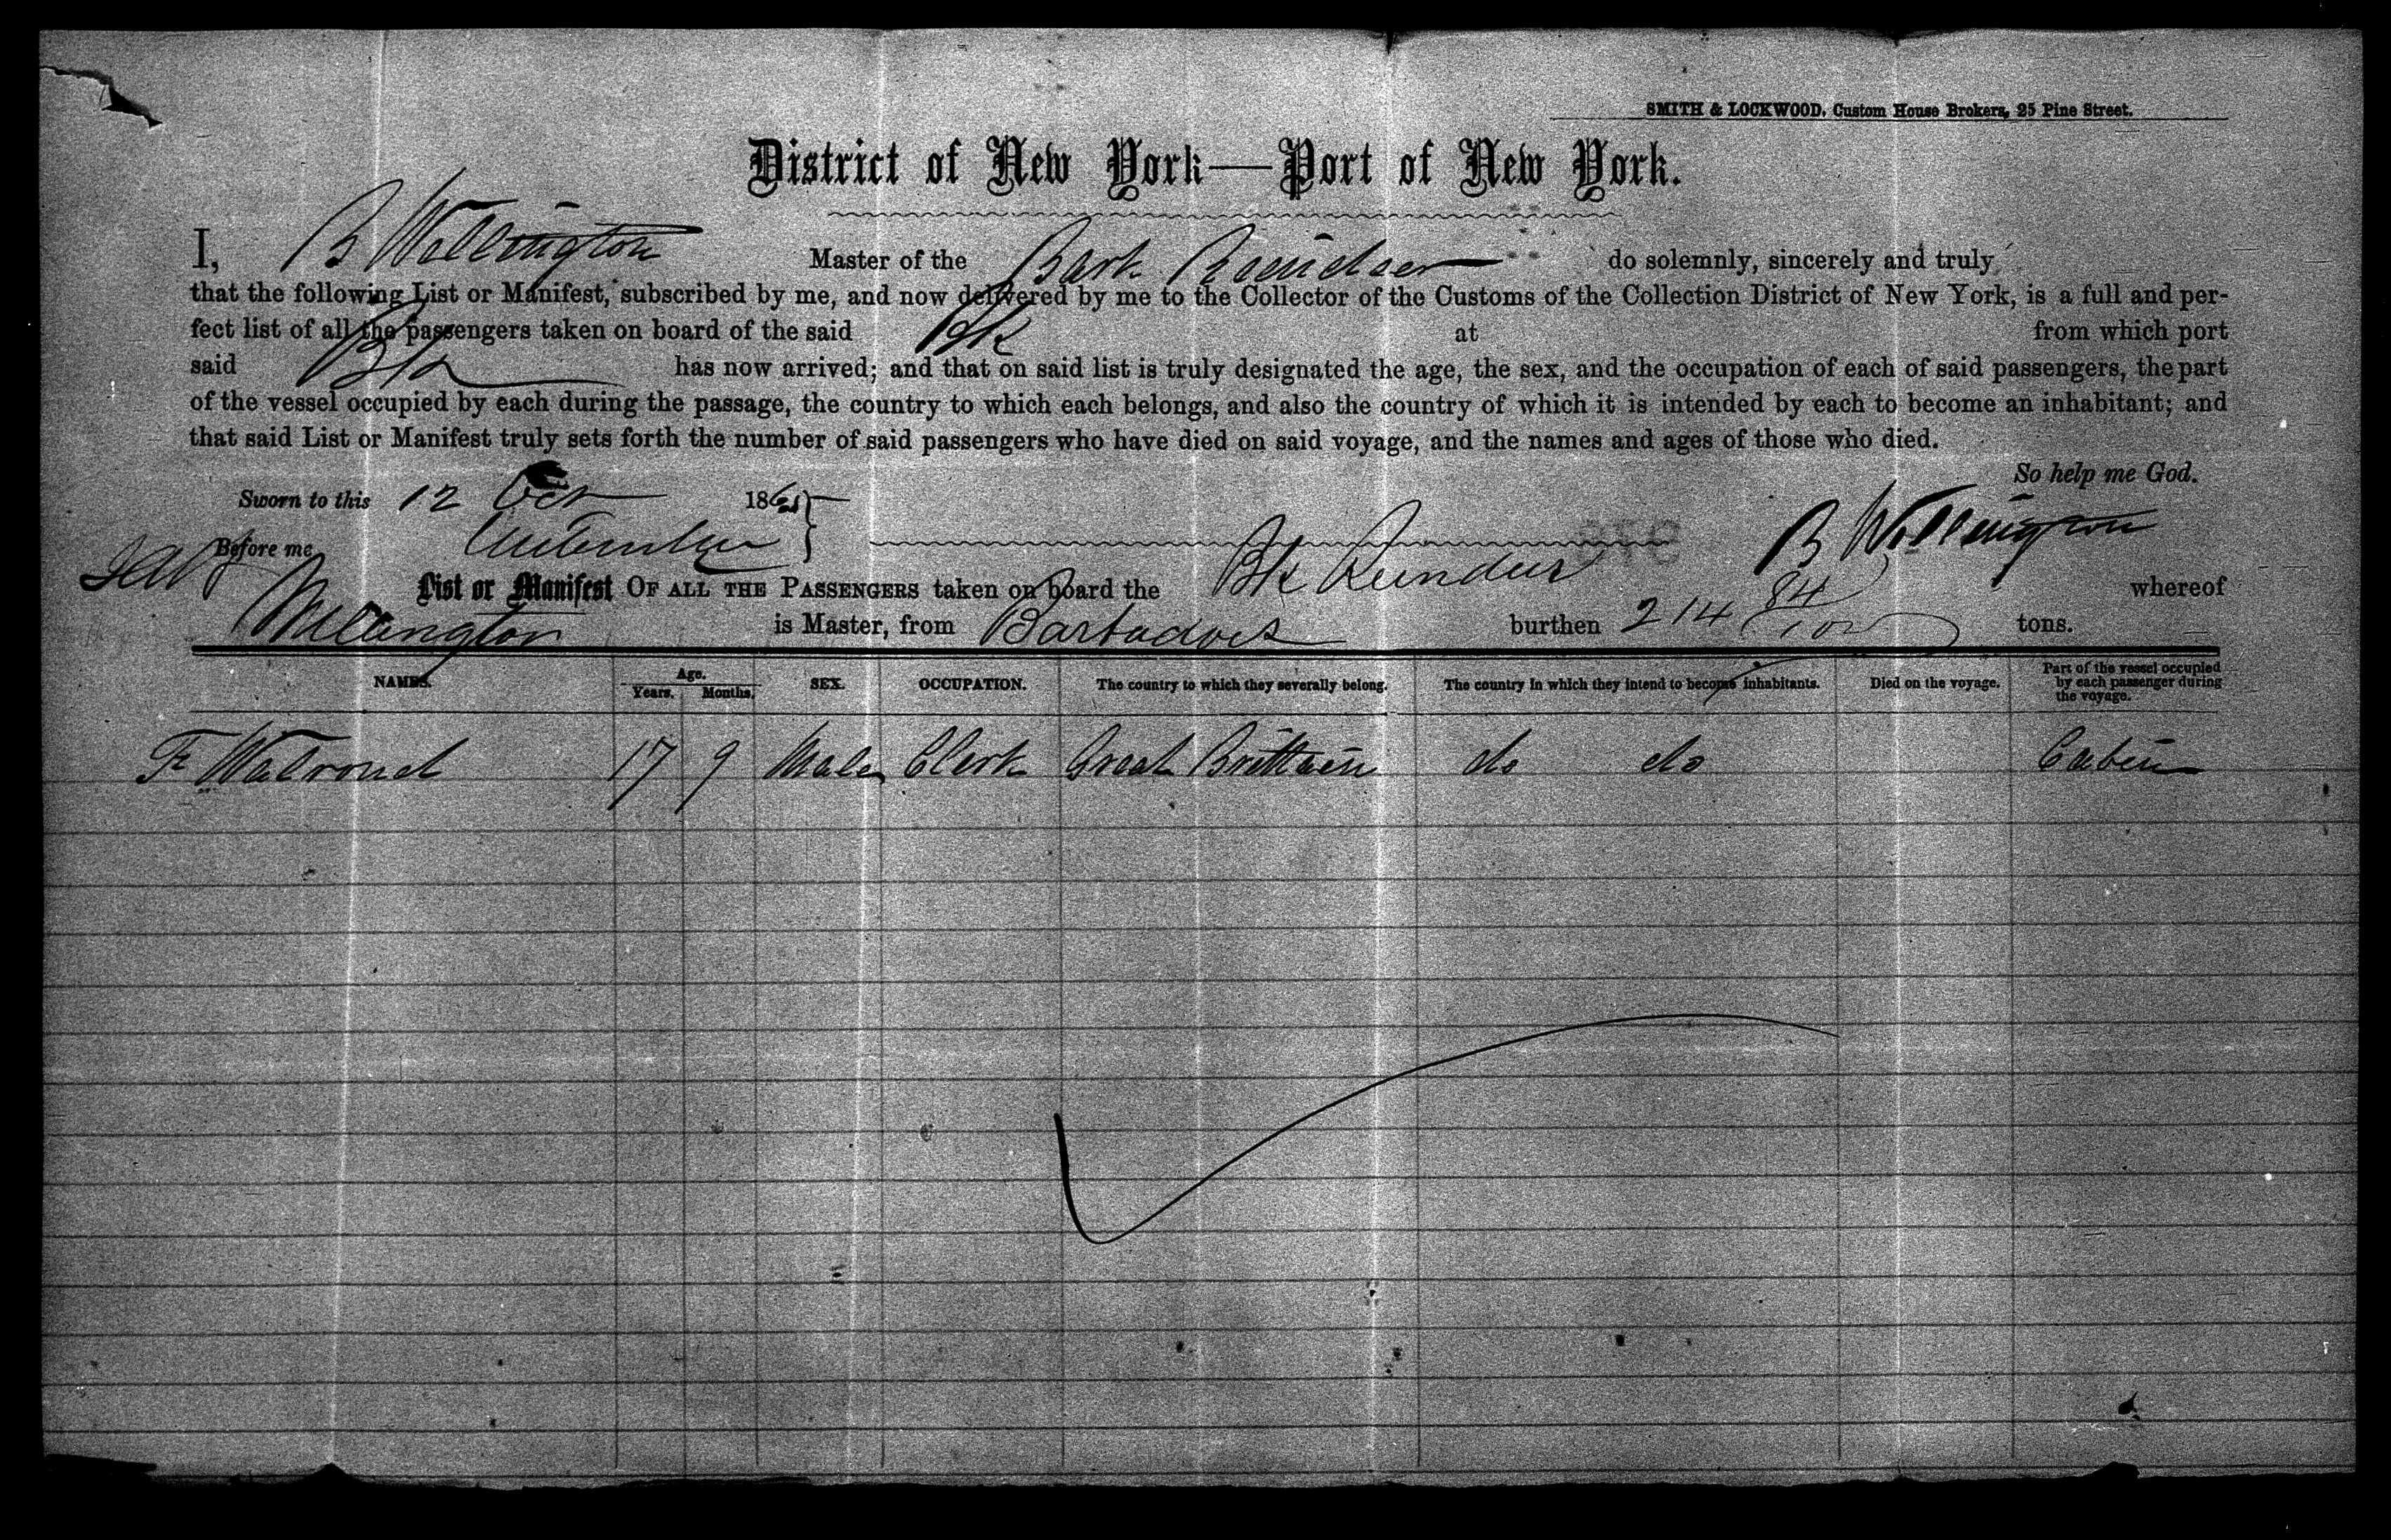 SMITH & LOCKWOOD, Custom House Brokers, 25 Pine Street.
District of New York—Port of New York.
I, B Wellington Master of the Bark Reindeer do solemnly, sincerely and truly
that the following List or Manifest, subscribed by me, and now delivered by me to the Collector of the Customs of the Collection District of New York, is a full and per-
fect list of all the passengers taken on board of the said Bk at from which port
said Bk has now arrived; and that on said list is truly designated the age, the sex, and the occupation of each of said passengers, the part
of the vessel occupied by each during the passage, the country to which each belongs, and also the country of which it is intended by each to become an inhabitant; and
that said List or Manifest truly sets forth the number of said passengers who have died on said voyage, and the names and ages of those who died.
So help me God.
Sworn to this 12 Oct 186
B Wellington
Before me
List or Manifest OF ALL THE PASSENGERS taken on board the Bk Reindeer whereof
Wellington is Master, from Barbadoes burthen 214 tons.
NAMES. Age. Years. Months. SEX. OCCUPATION. The country to which they severally belong. The country in which they intend to become inhabitants. Died on the voyage. Part of the vessel occupied by each passenger during the voyage.
F Walrond 17 9 Male Clerk Great Brittain do do Cabin